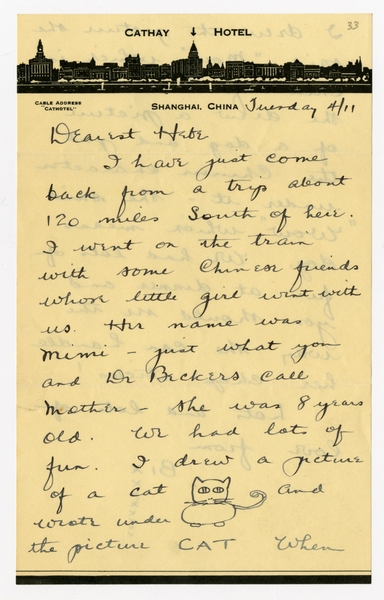 33
CATHAY HOTEL
CABLE ADDRESS
"CATHOTEL"
SHANGHAI, CHINA Tuesday 4/11
Dearest Hebe
I have just come
back from a trip about
120 miles South of here.
I went on the train
with some Chinese friends
whose little girl went with
us. Her name was
Mimi - just what you
and Dr Beckers call
Mother - she was 8 years
old. We had lots of
fun. I drew a picture
of a cat and
wrote under
the picture CAT When